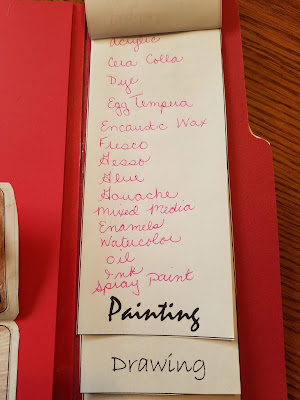 Acrylic
Cera Colla
Dye
Egg Tempera
Encaustic Wax
Fresco
Gesso
Glue
Gouache
Mixed Media
Enamels
Watercolor
Oil
Ink
Spray Paint
Painting
Drawing